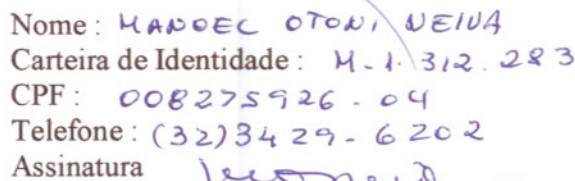 Nome : MANOEL OTONI NEIVA
Carteira de Identidade : M-1.312.283
CPF : 008275926-04
Telefone : (32)3429-6202
Assinatura